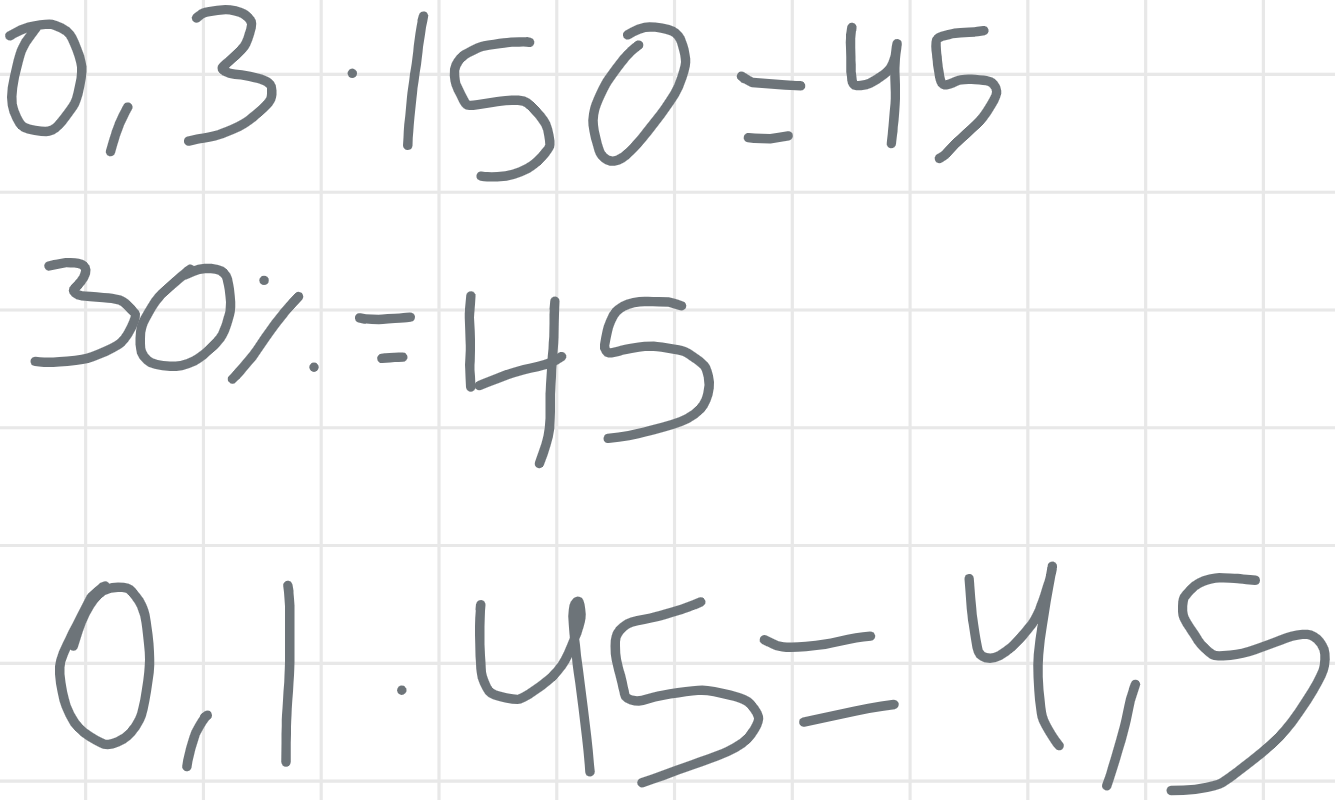 0,3 · 150 = 45
30% = 45
0,1 · 45 = 4,5